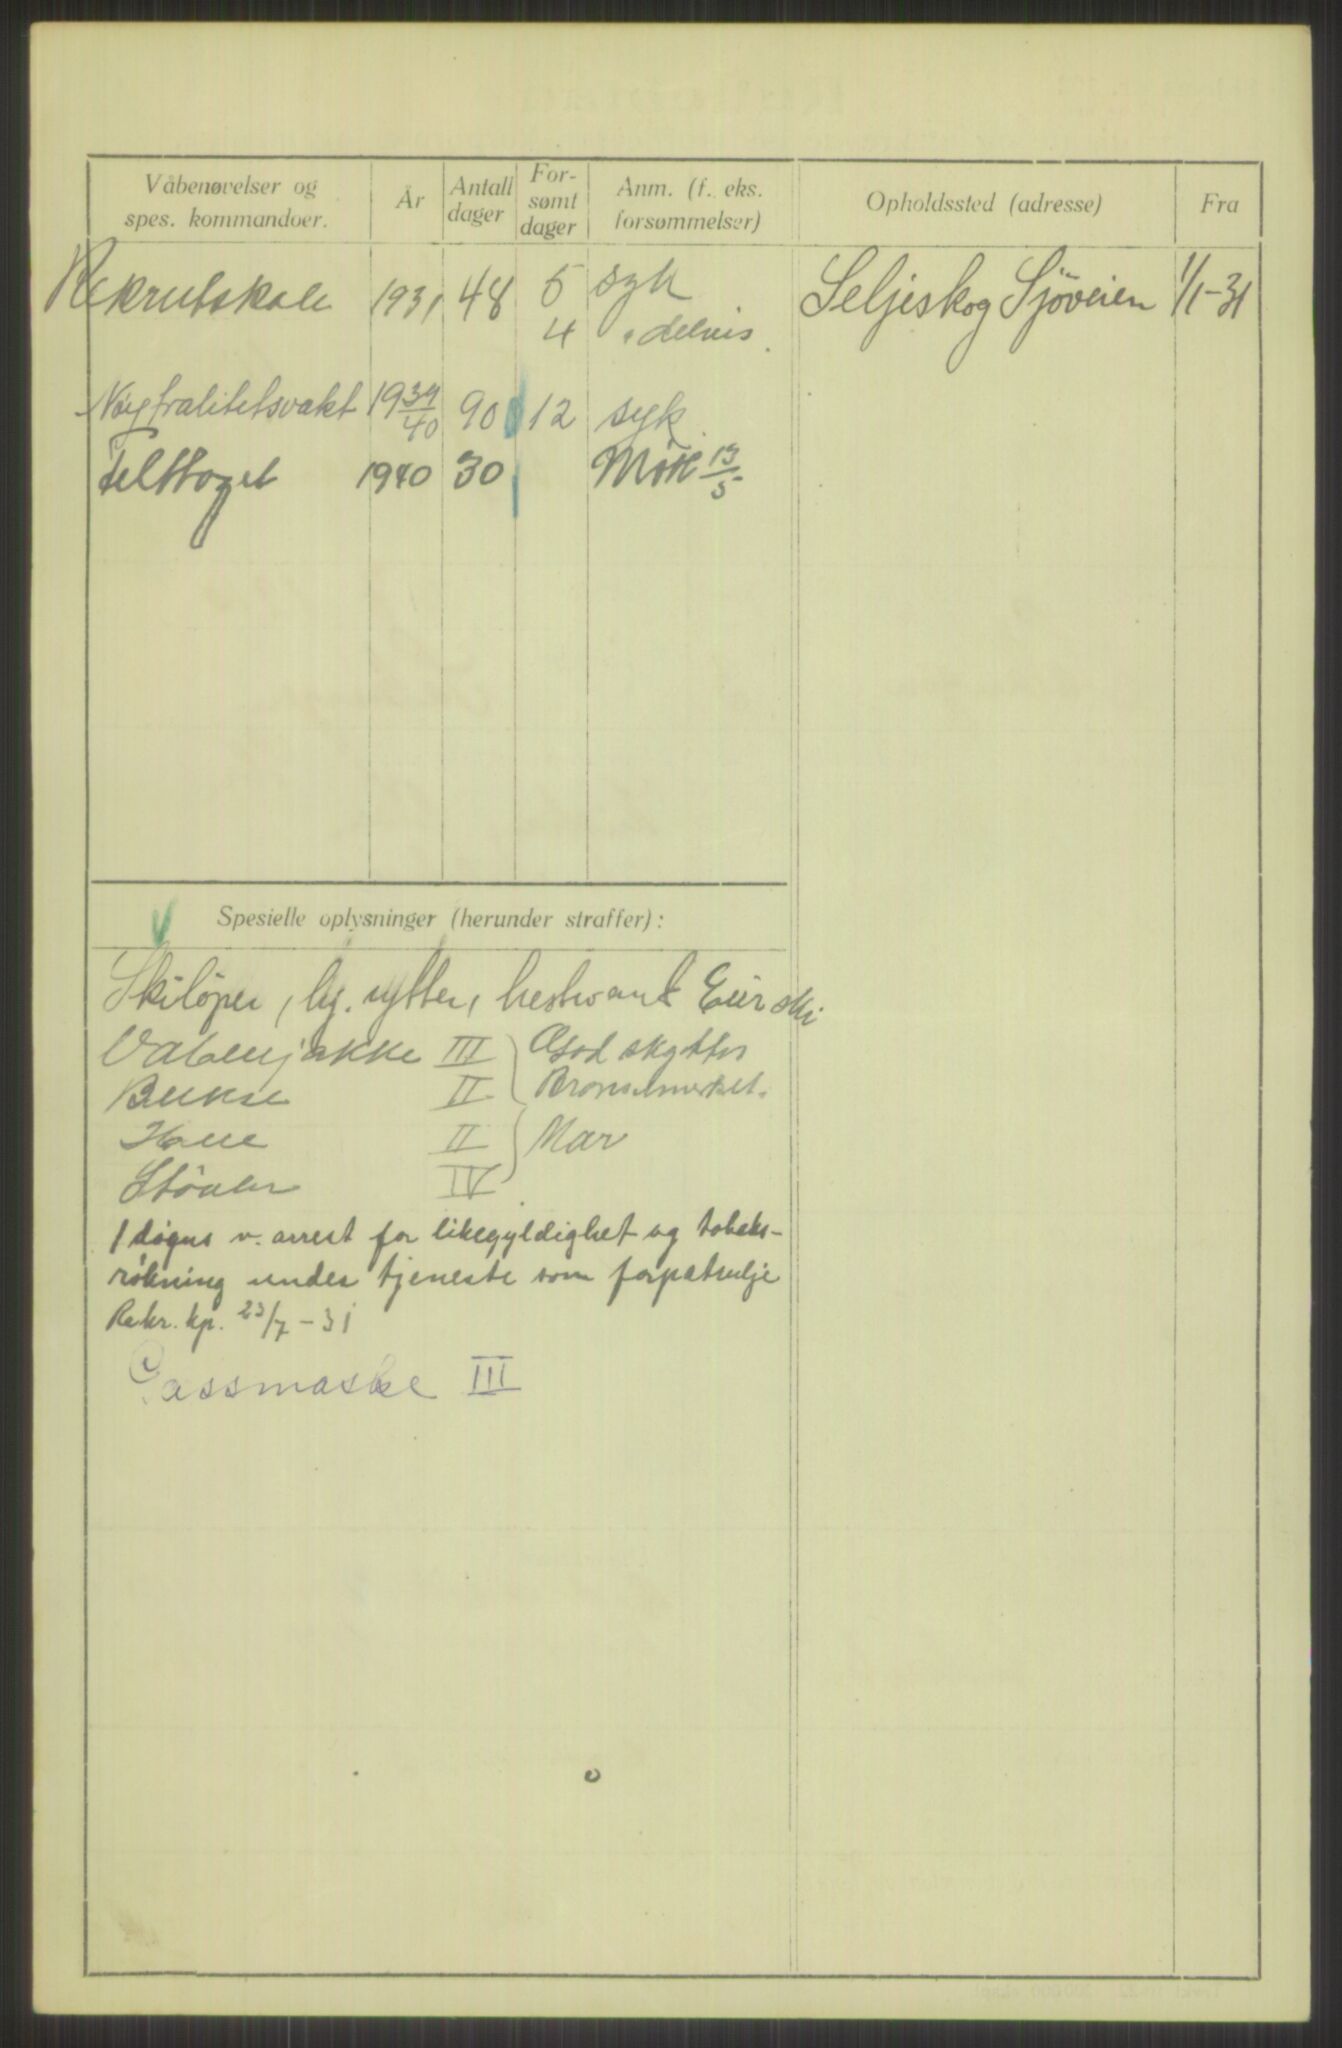 Våbenøvelser og spes. kommandoer. År Antall dager For- sømt dager Anm. (f. eks. forsømmelser) Opholdssted (adresse) Fra
Rekrutskole 1931 48 5 syk Seljeskog Sjöveien 1/1-31
4 " delvis.
Nöytralitetsvakt 1939/40 90 12 syk.
Felttoget 1940 30 Møtt 13/5
Spesielle oplysninger (herunder straffer):
Skilöper, rytter, hestvant Eier ski
Våbenjakke III God skytter
Bukse II Bronsemerket.
Hue II Mar
Stövler IV
1 døgns v. arrest for likegyldighet og tobaks-
røkning under tjeneste som forpatrulje
Rekr. kp. 23/7-31
Gassmaske III